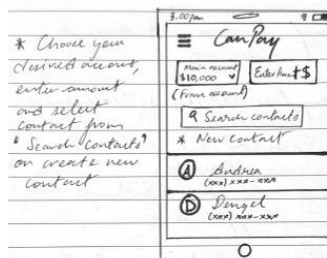 * Choose your
desired account,
enter amount
and select
contact from
"Search contacts"
or create new
contact
3:00pm
CanPay
Main account
$10,000
Enter Amt $
(From account)
Search contacts
* New contact
A Andrea
(xxx) xxx-xxxx
D Denzel
(xxx) xxx-xxxx